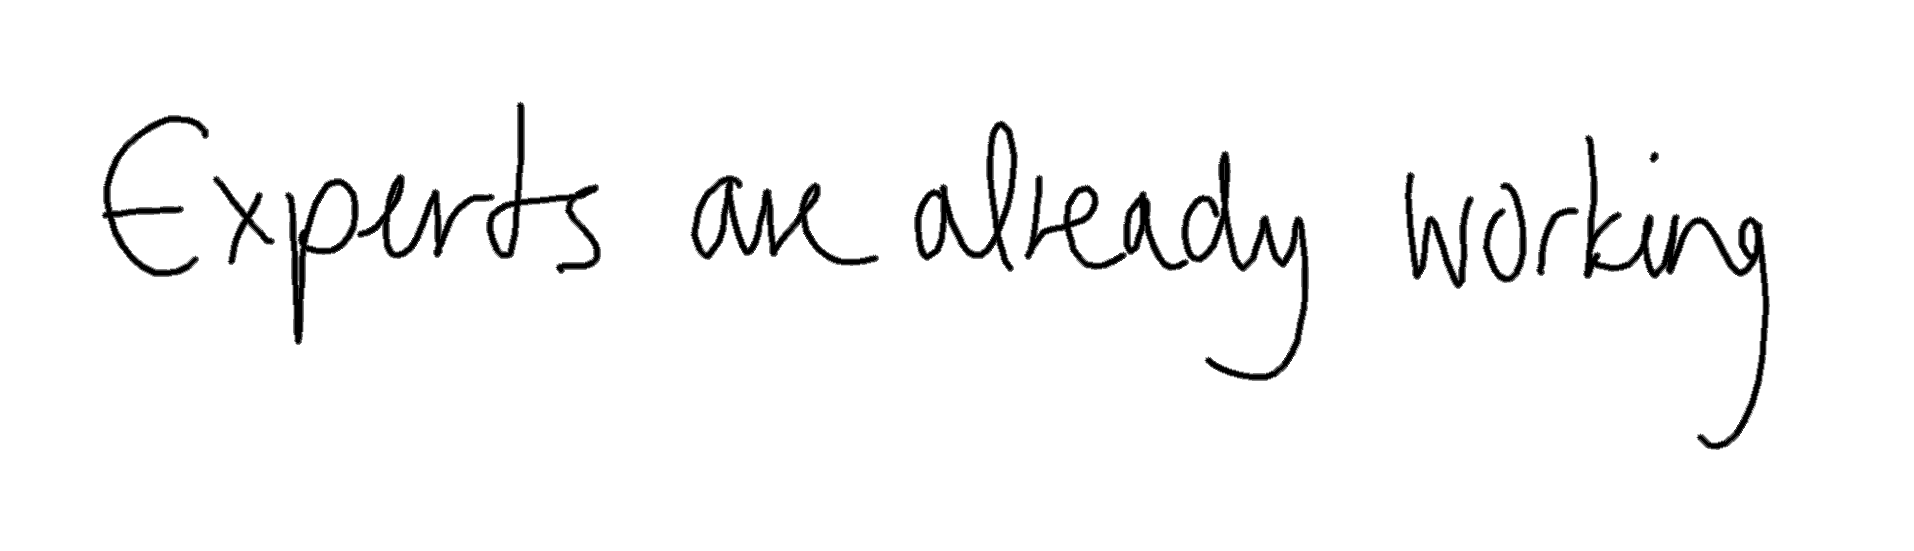 Experts are already working